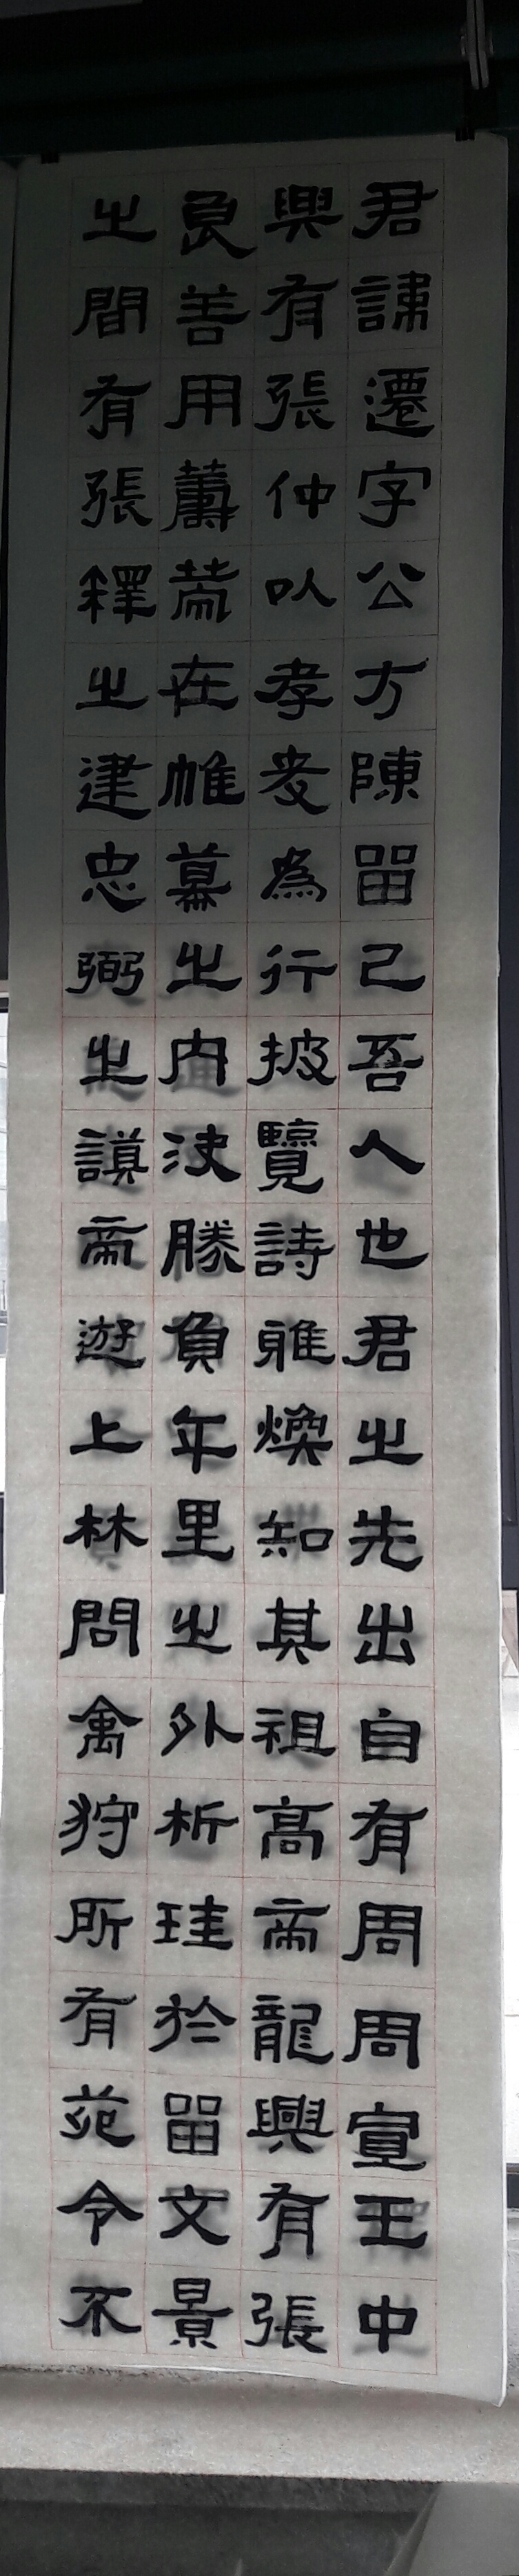 君諱遷字公方陳留己吾人也君之先出自有周周宣王中
興有張仲以孝友為行披覽詩雅煥知其祖高帝龍興有張
良善用籌策在帷幕之內決勝負千里之外析珪於留文景
之間有張釋之建忠弼之謨帝遊上林問禽狩所有苑令不